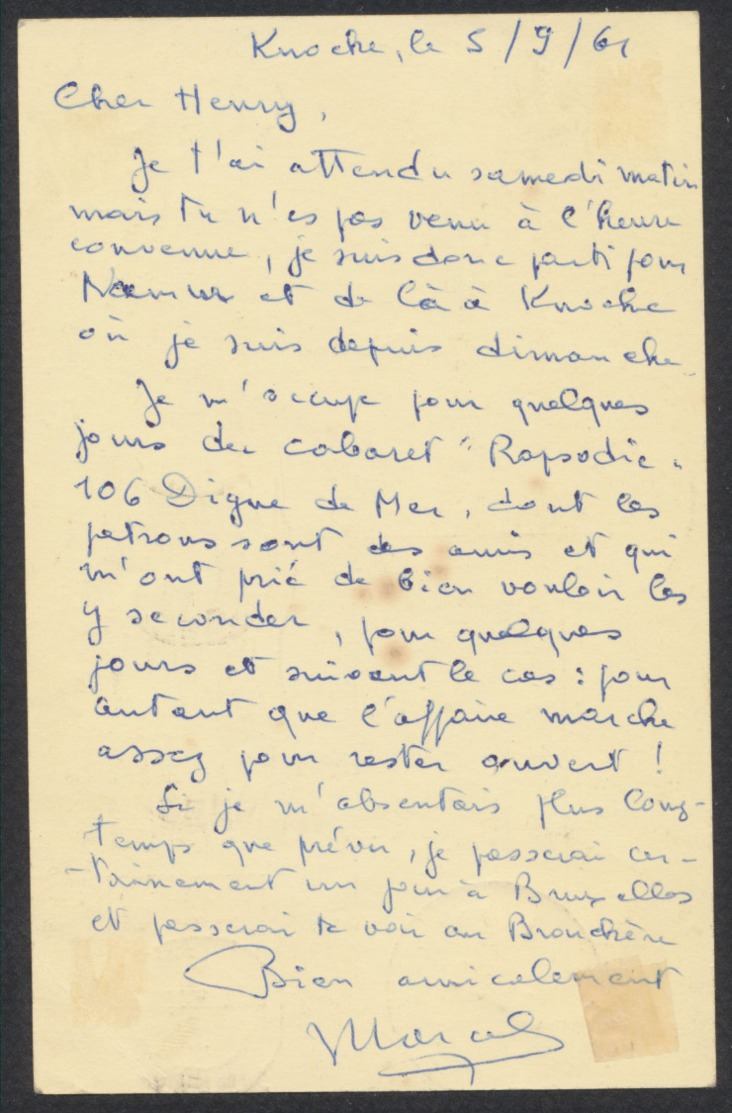 Knocke, le 5/9/61
Cher Henry,
Je t'ai attendu samedi matin
mais tu n'es pas venu à l'heure
convenue, je suis donc parti pour
Namur et de là à Knocke
où je suis depuis dimanche.
Je m'occupe pour quelques
jours du cabaret "Rapsodie"
106 Digue de Mer, dont les
patrons sont des amis et qui
m'ont prié de bien vouloir les
y seconder, pour quelques
jours et suivant le cas : pour
autant que l'affaire marche
assez pour rester ouvert !
Si je m'absentais plus long-
temps que prévu, je passerai cer-
tainement un jour à Bruxelles
et passerai te voir au Brouckère
Bien amicalement
Marcel